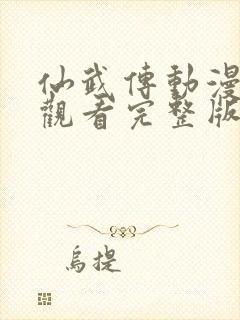 仙武傳動漫
觀看完整版
烏提